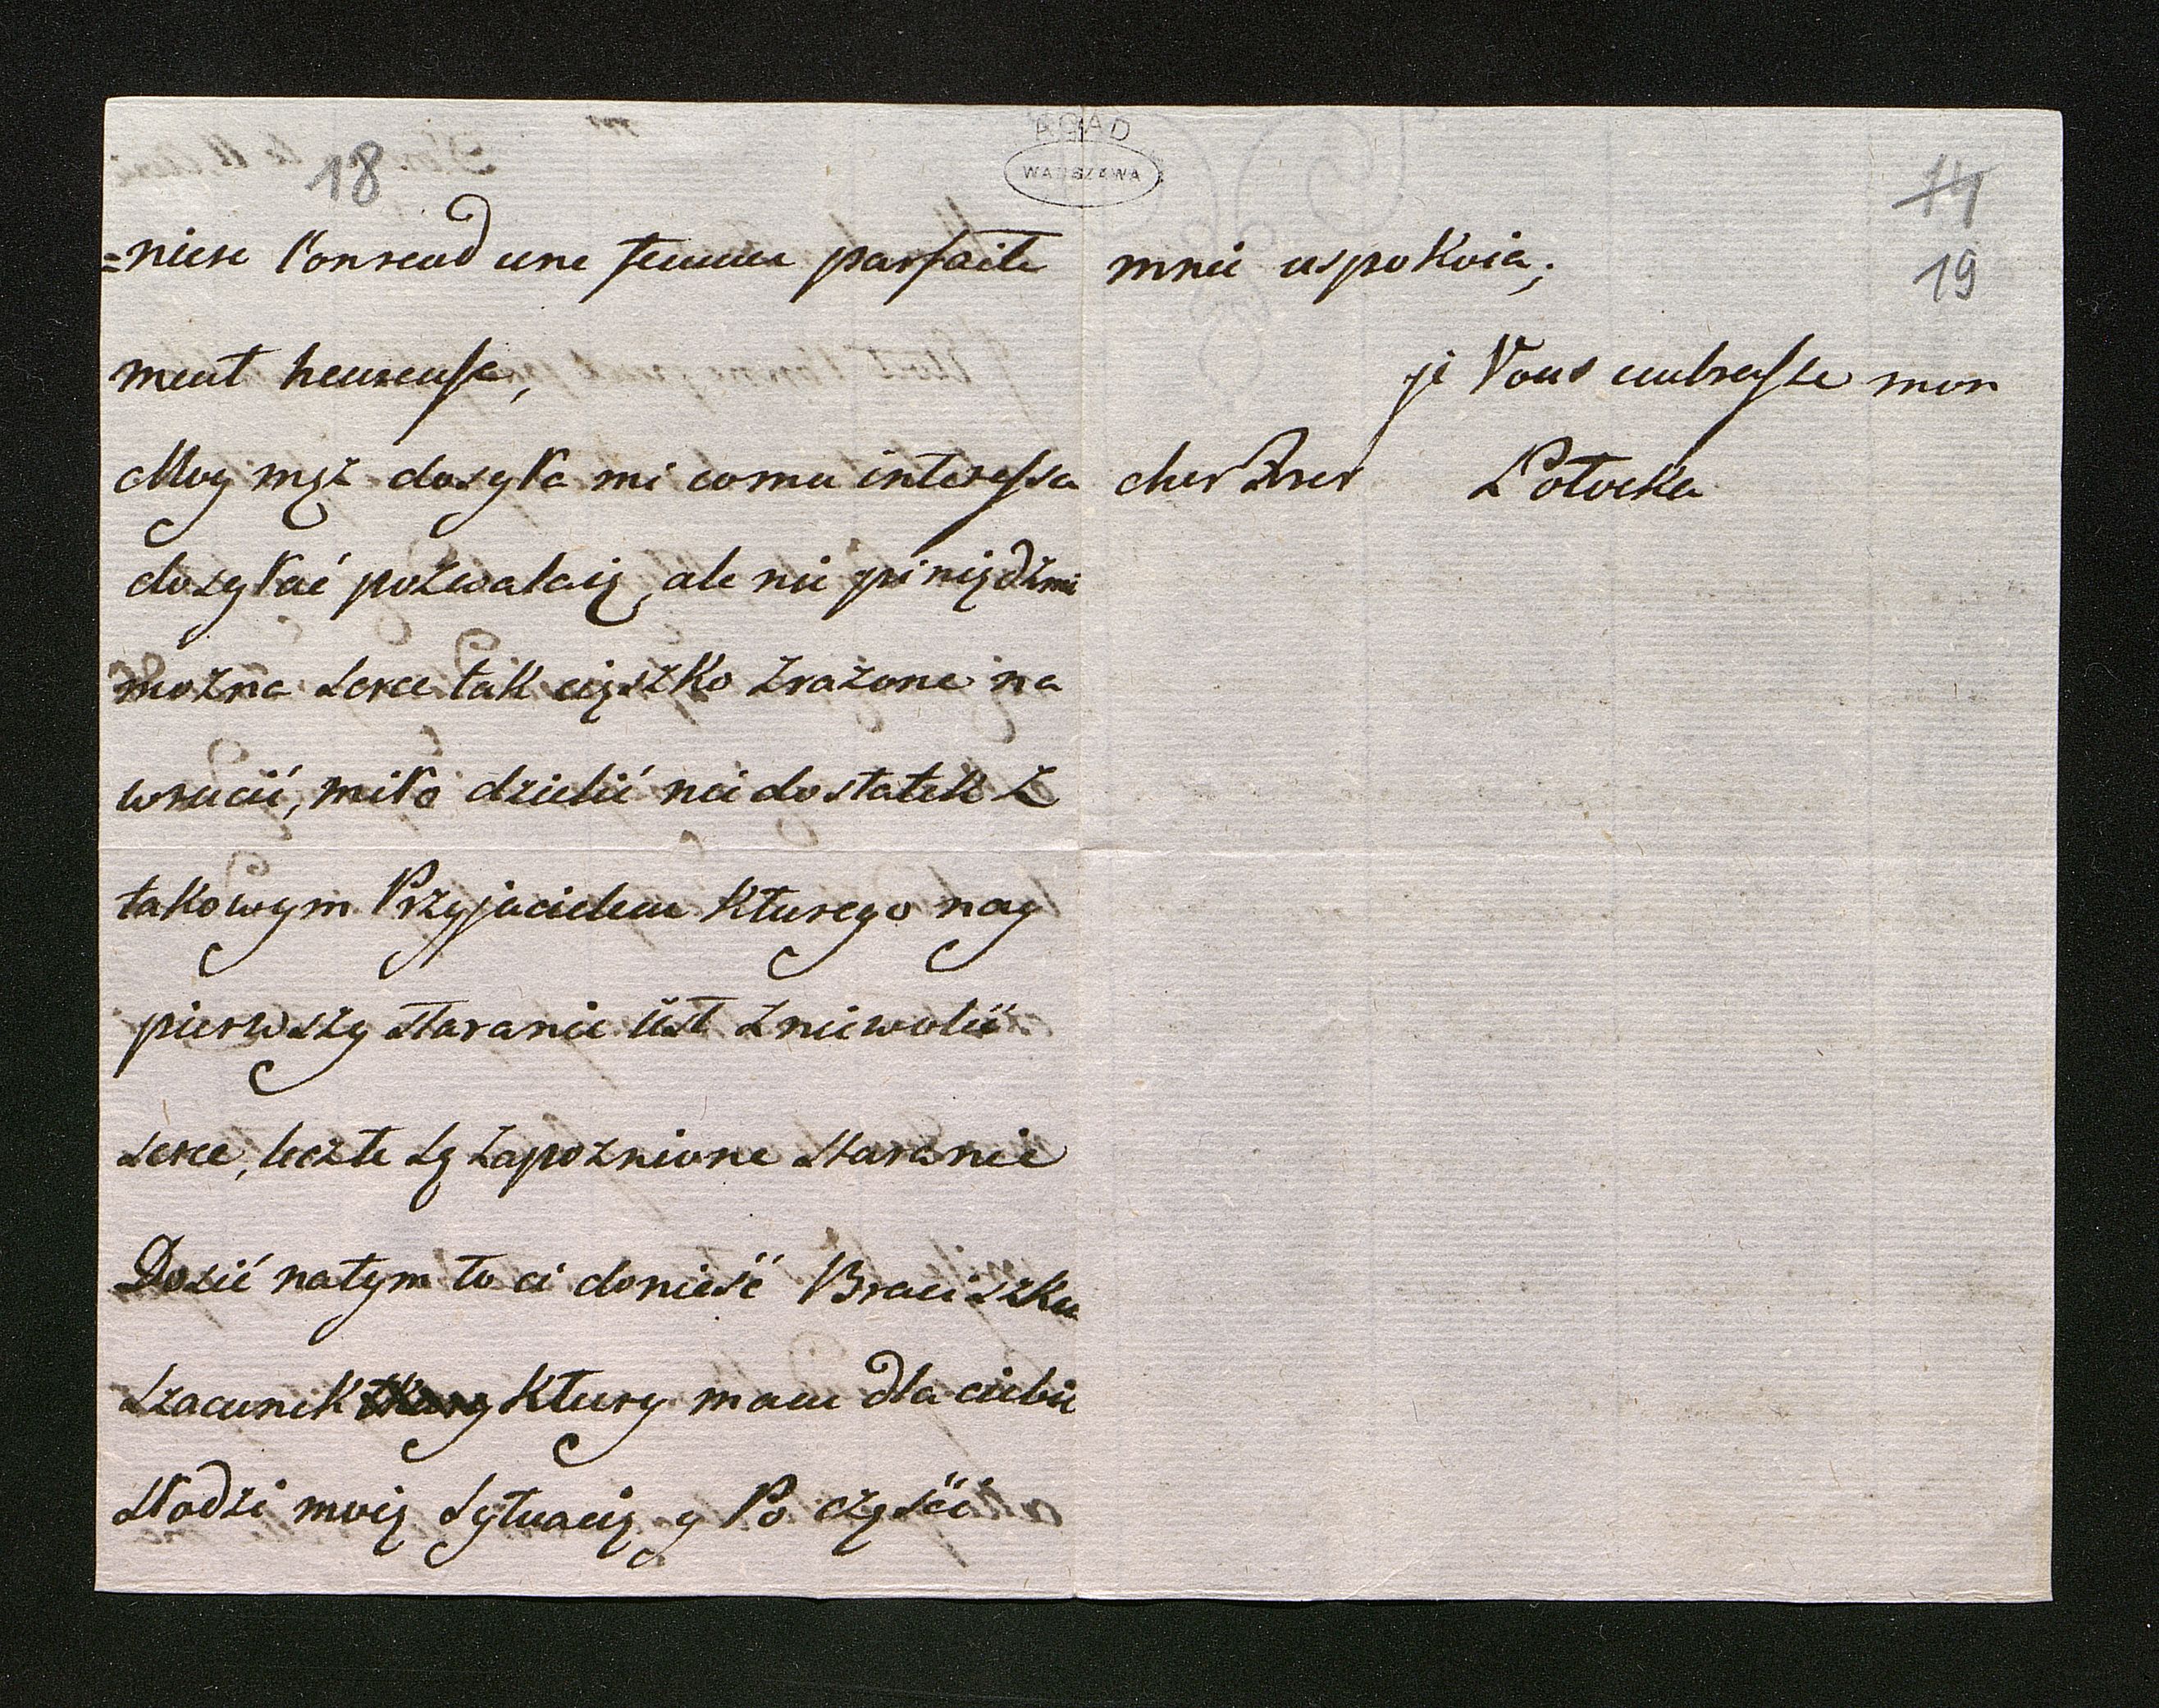 18
=niere l'onrend une femme parfaite
ment heureuse,
Moy mąż dosyła mi comu interessa
dosyłać pozwalaią, ale nie piniędzmi
można serce tak cięszko zrażone na
wrucić, miło dzielić nidostatek z
takowym Przyjacielem kturego nay
pierwszy staranie iest zniewolić
serce, leczte są zapoznione staranie
Dosić natym to ci donieść Braciszku
szacunek ktury mam dla ciebie
słodzi moię sytuacię y Po częśći
AGAD
WARSZAWA
14
19
mnie uspokoia;
je Vous embrasse mon
cher Frer Potocka